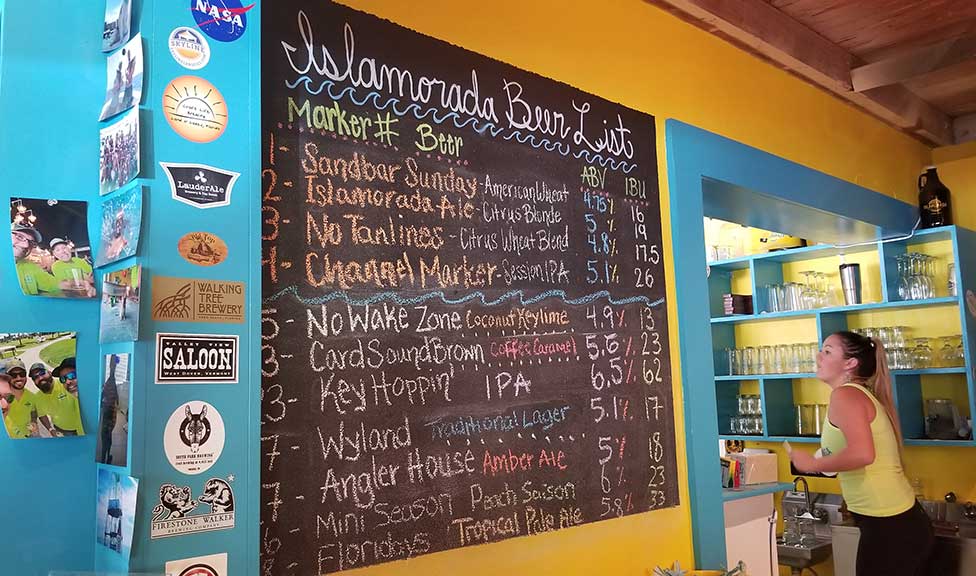 NASA
SKYLINE
LAUDERALE
WALKING
TREE
BREWERY
VALLEY VIEW
SALOON
WEST DOVER, VERMONT
SOUTH PARK BREWING
FIRESTONE WALKER
BREWING COMPANY
Islamorada Beer List
Marker# Beer ABV IBU
1- Sandbar Sunday - American Wheat 4.75% 16
2- Islamorada Ale - Citrus Blonde 5% 19
3- No Tanlines - Citrus Wheat Blend 4.8% 17.5
4- Channel Marker - Session IPA 5.1% 26
5- No Wake Zone Coconut Keylime 4.9% 13
3- Card Sound Brown Coffee Caramel 5.5% 23
3- Key Hoppin IPA 6.5% 62
7- Wyland Traditional Lager 5.1% 17
7- Angler House Amber Ale 5% 18
Mini Season Peach Saison 6% 23
Floridays Tropical Pale Ale 5.8% 33